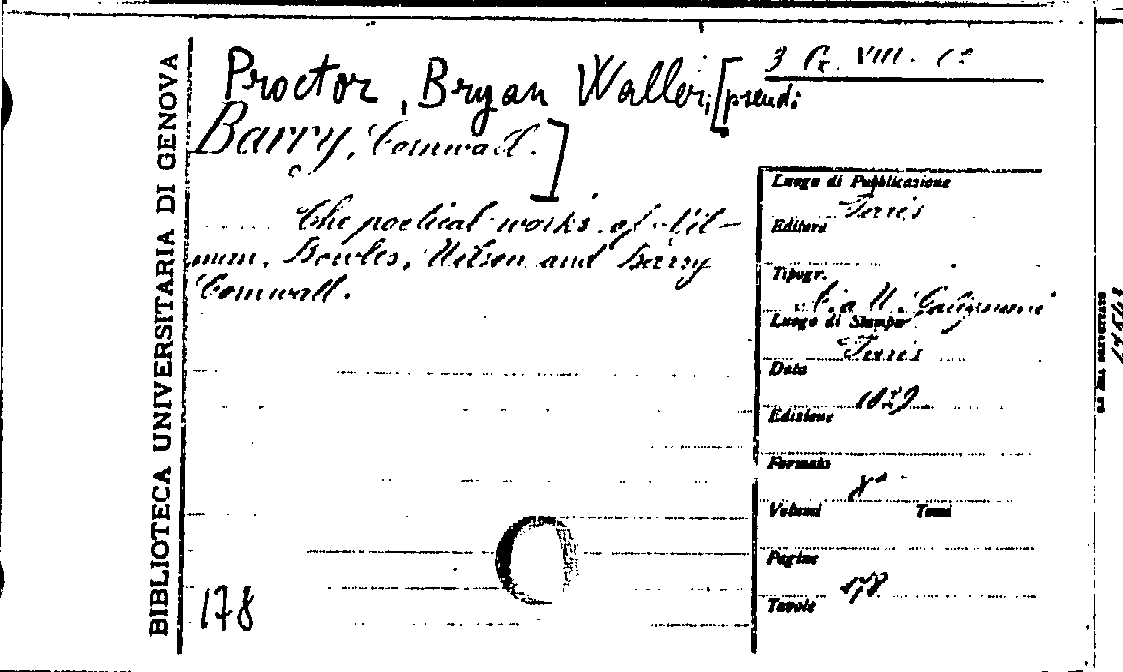 BIBLIOTECA UNIVERSITARIA DI GENOVA
Proctor, Bryan Waller, [pseud:
Barry, Cornwall.]
The poetical works of Mil-
man, Bowles, Wilson and Barry
Cornwall.
178
3 VIII.
Luogo di Pubblicazione
Paris
Editore
Tipogr.
A. a W. Galignani
Luogo di Stampa
Paris
Data
1829
Edizione
Formato
8°
Volumi Tomi
Pagine
178
Tavole